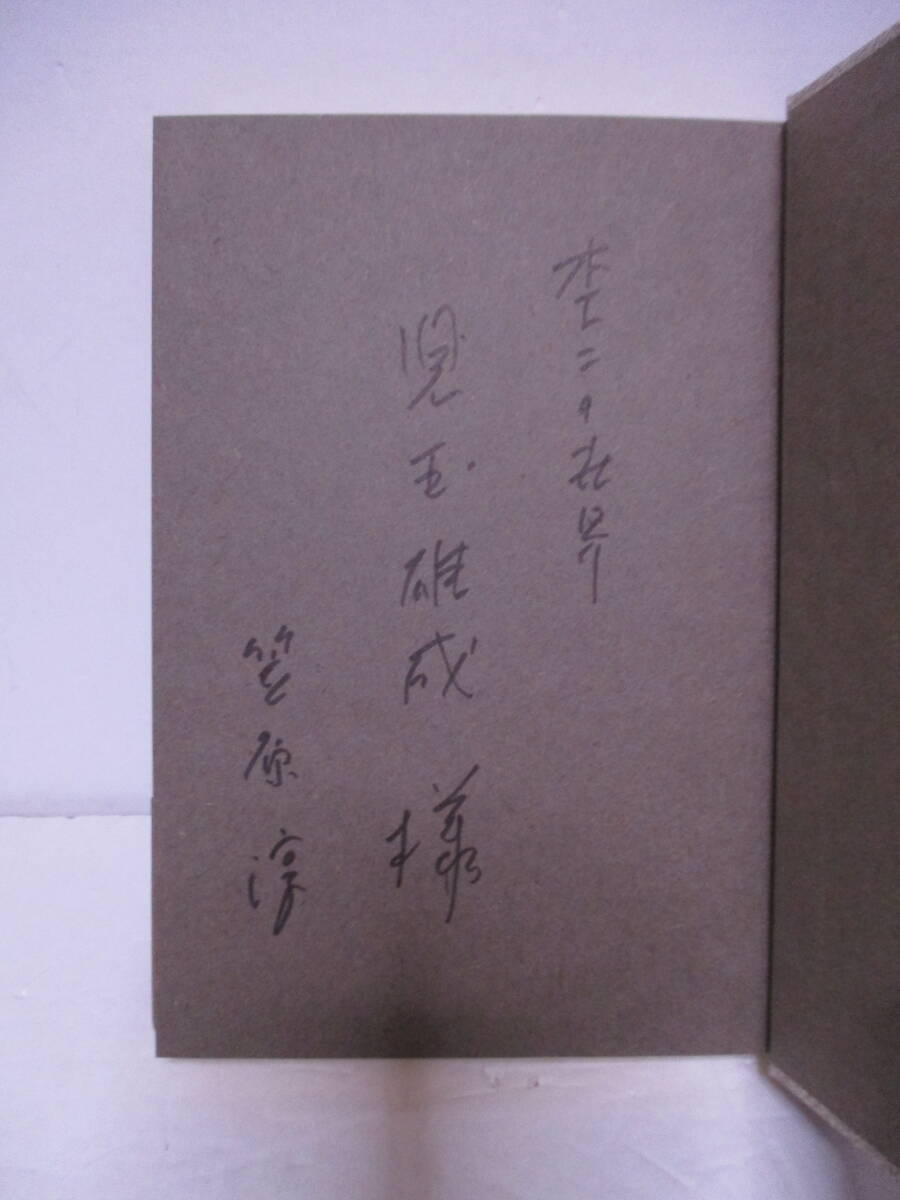 杢二の世界
児玉雄成様
笠原淳